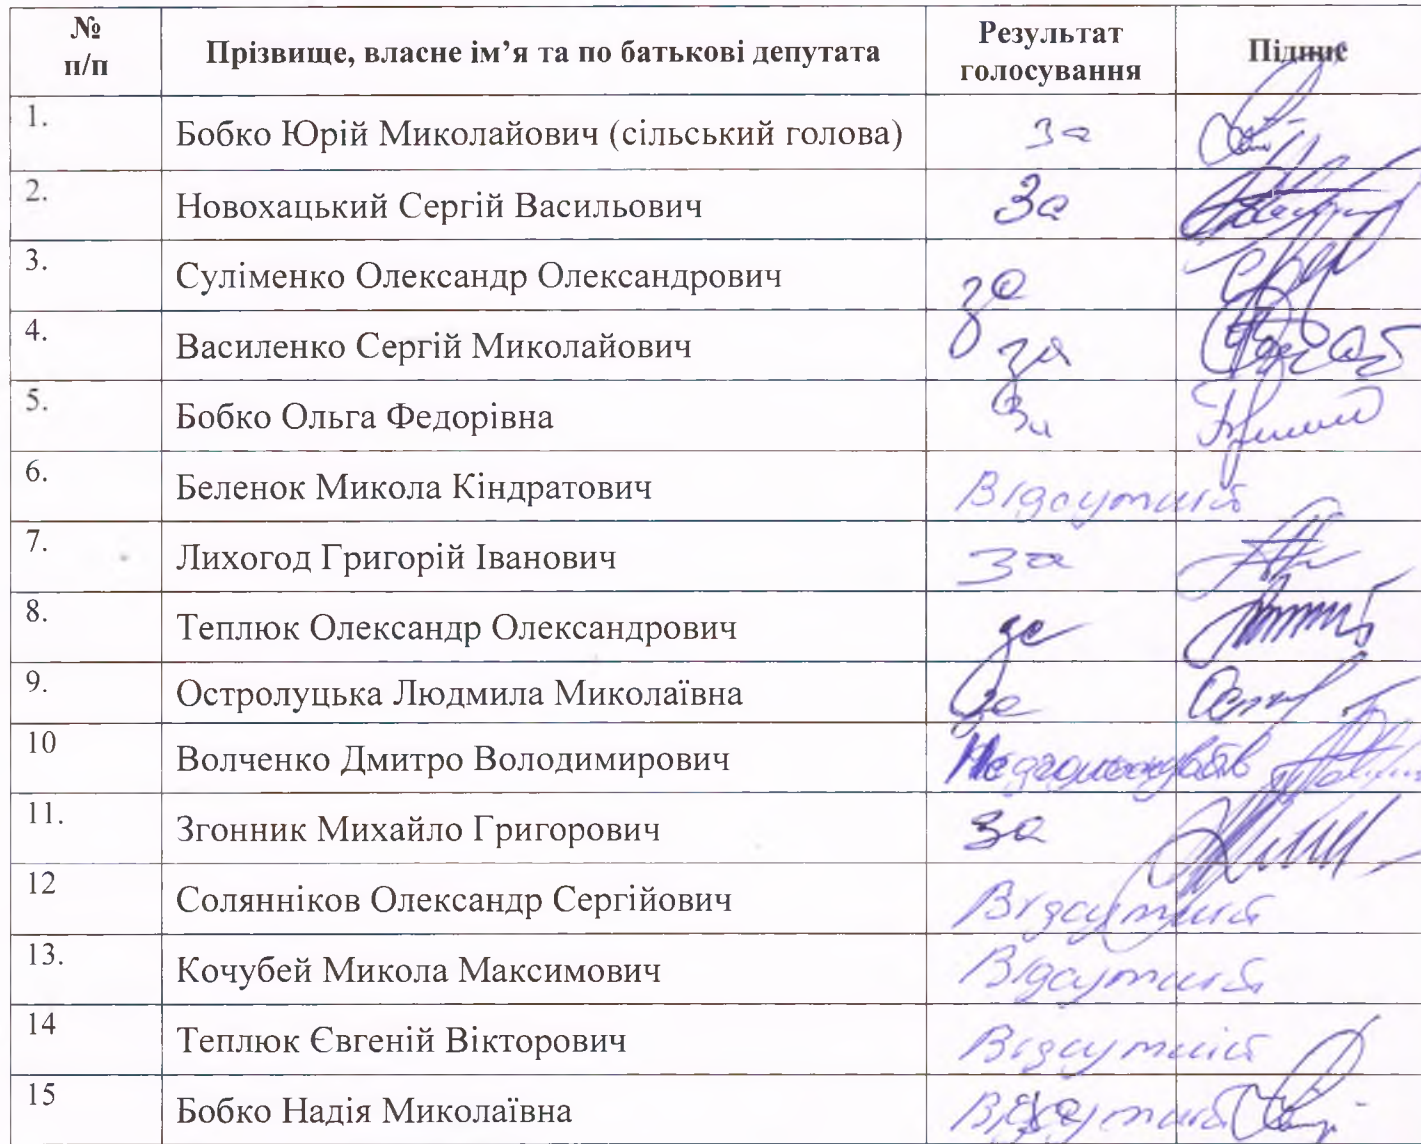 № п/п Прізвище, власне ім’я та по батькові депутата Результат голосування Підпис
1. Бобко Юрій Миколайович (сільський голова) За
2. Новохацький Сергій Васильович За
3. Суліменко Олександр Олександрович за
4. Василенко Сергій Миколайович за
5. Бобко Ольга Федорівна За
6. Беленок Микола Кіндратович Відсутній
7. Лихогод Григорій Іванович За
8. Теплюк Олександр Олександрович за
9. Остролуцька Людмила Миколаївна за
10 Волченко Дмитро Володимирович
11. Згонник Михайло Григорович За
12 Солянніков Олександр Сергійович Відсутній
13. Кочубей Микола Максимович Відсутній
14 Теплюк Євгеній Вікторович Відсутній
15 Бобко Надія Миколаївна